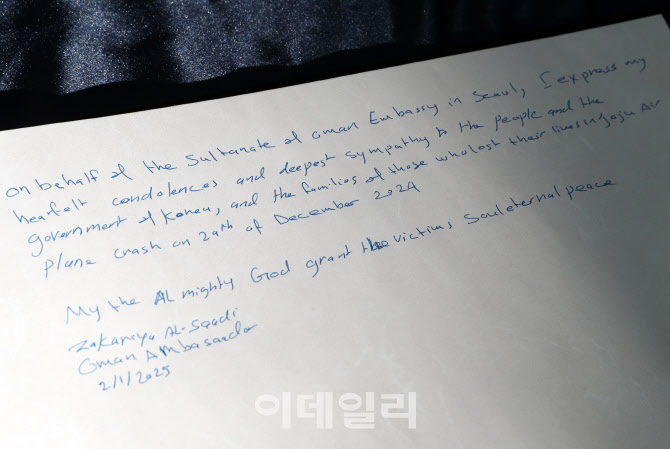 on behalf of the Sultanate of Oman Embassy in Seoul, I express my
hearfelt condolences and deepest sympathy to the people and the
government of Korea, and the families of those who lost their lives in Jeju Air
plane crash on 29th of December 2024
My the Almighty God grant the victims soul eternal peace
Zakariya AL-Saadi
Oman Ambasaador
2/1/2025
이데일리